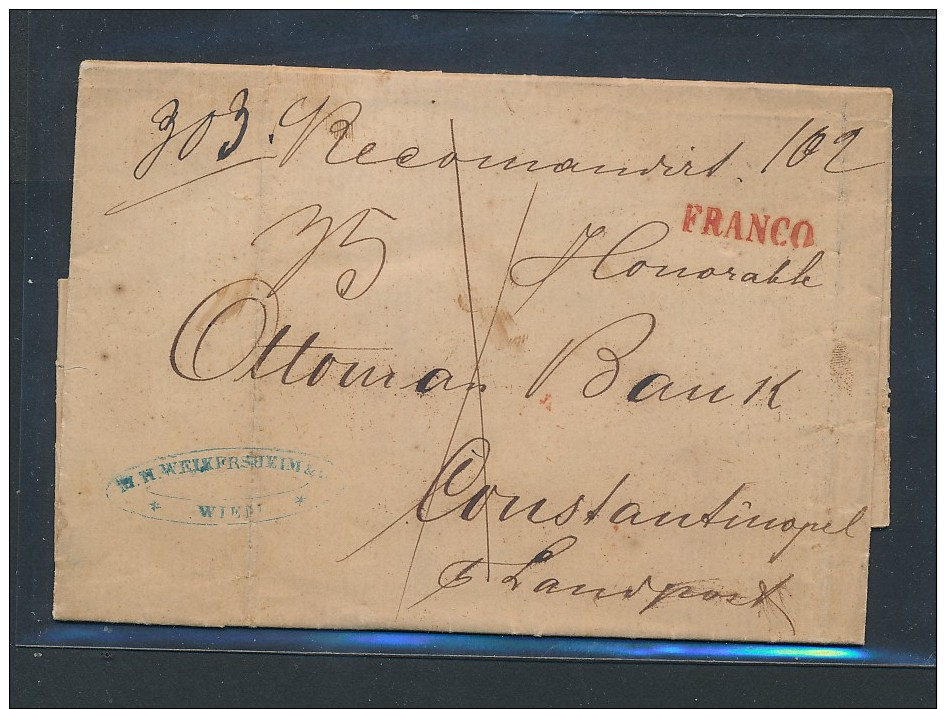 303. Recomandirt. 102
FRANCO
35 Honorable
Ottoman Bank
M.H. WEIKERSHEIM &
WIEN
Constantinopel
p Landpost